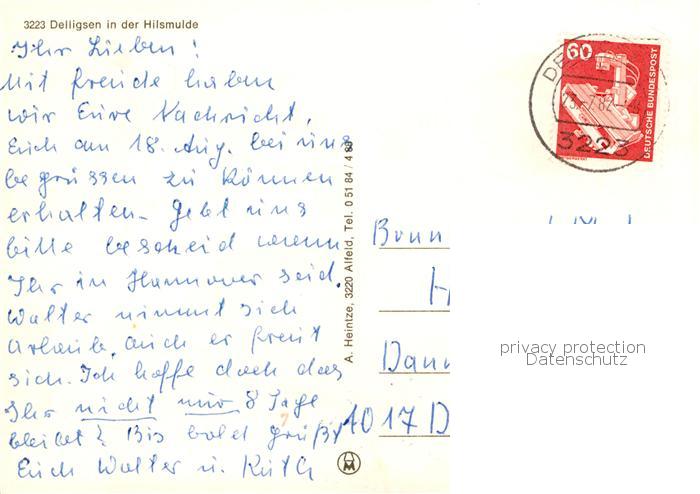 3223 Delligsen in der Hilsmulde
Ihr Lieben!
Mit Freude haben
wir Eure Nachricht,
Euch am 18. Aug. bei uns
begrüssen zu können
erhalten. Gebt uns
bitte bescheid wenn
Ihr in Hannover seid.
Walter nimmt sich
Urlaub, auch er freut
sich. Ich hoffe doch das
Ihr nicht nur 8 Tage
bleibt? Bis bald grüßt
Euch Walter u. Ruth
A. Heintze, 3220 Alfeld, Tel. 0 51 84 / 4 88
60
DEUTSCHE BUNDESPOST
3223
Bonn
H
Dann
1017 D
privacy protection
Datenschutz